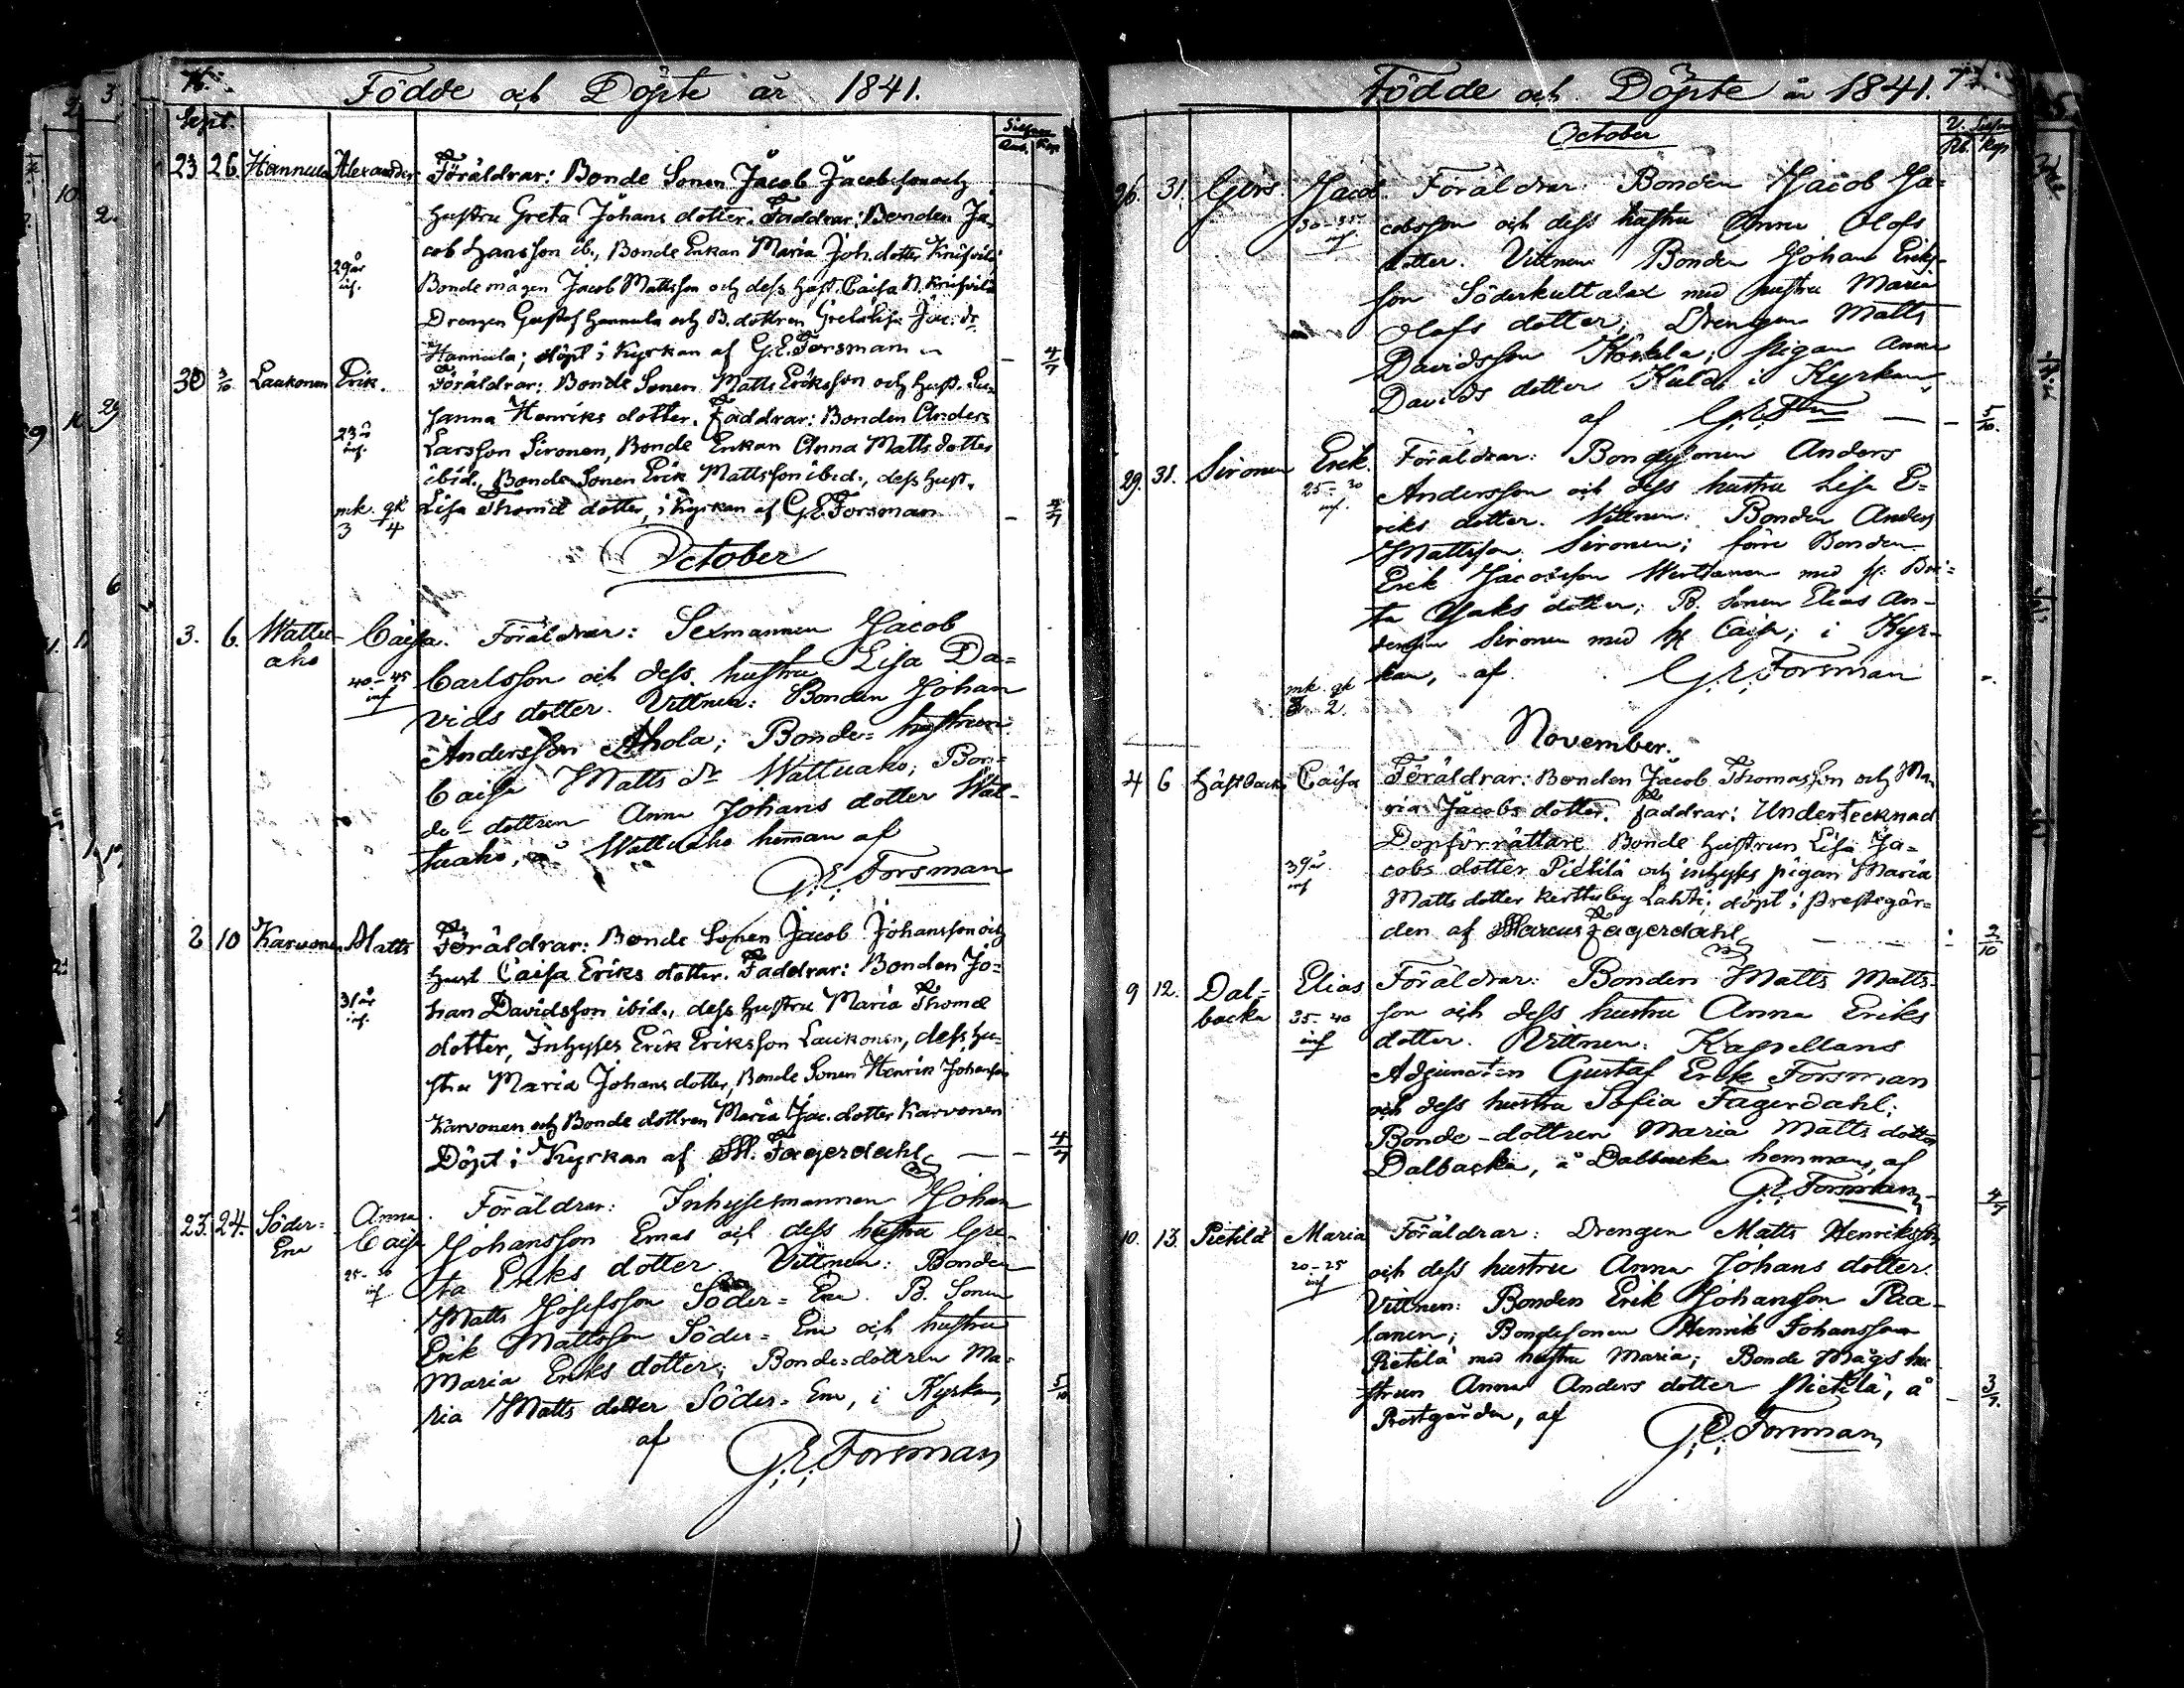 Födde och Döpte år 1841.
Sept.
23 26 Hannula Alexander Föräldrar: Bonde Sonen Jacob Jacobsson och
hustru Greta Johans dotter. Faddrar: Bonden Ja-
cob Hansson ib., Bonde Enkan Maria Joh. dotter
29 år Bonde mågen Jacob Mattsson och dess hust. Caisa
inf. Drengen Gustaf Hannula och B. dottren Greta Lisa Jac. dr
Hannula; döpt i Kyrkan af G.E. Forsman
30 3/10 Laukonen Erik. Föräldrar: Bonde Sonen Matts Eriksson och hust. Su-
sanna Henriks dotter. Faddrar: Bonden Anders
23 å Larsson Sironen, Bonde Enkan Anna Matts dotter
inf. ibid., Bonde Sonen Erik Mattsson ibid., dess hust.
mk. qk Lisa Thomæ dotter, i Kyrkan af G.E. Forsman
3 4
October
3. 6. Wattu- Caisa. Föräldrar: Sexmannen Jacob
aho Carlsson och dess hustru Lisa Da-
40-45 vids dotter. Vittnen: Bonden Johan
inf Andersson Ahola; Bonde-hustrun
Caisa Matts dr Wattuaho; Bon-
de-dottren Anna Johans dotter Wat-
tuaho, å Wattuaho heman af
G.E. Forsman
8 10 Karvonen Matts Föräldrar: Bonde Sonen Jacob Johansson och
hust Caisa Eriks dotter. Faddrar: Bonden Jo-
31 år han Davidsson ibid., dess hustru Maria Thomæ
inf. dotter, Inhyses Erik Eriksson Laukonen, dess hu-
stru Maria Johans dotter, Bonde Sonen Henrik Johansson
Karvonen och Bonde dottren Maria Jac. dotter Karvonen
Döpt i Kyrkan af M. Fagerdahl 4/7
23. 24. Söder- Anna Föräldrar: Inhysesmannen Johan
Ena Caisa Johansson Enas och dess hustru Gre-
25-30 ta Eriks dotter. Vittnen: Bonden
inf Matts Josefsson Söder-Ena. B. Sonen
Erik Mattsson Söder-Ena och hustru
Maria Eriks dotter; Bonde-dottren Ma-
ria Matts dotter Söder-Ena, i Kyrkan 5/10
af G.E. Forsman
Födde och Döpte år 1841.
October
26. 31. Jacob. Föräldrar: Bonden Jacob Ja-
30-35 cobsson och dess hustru Anna Olofs
inf dotter. Vittnen: Bonden Johan Eriks-
son med hustru Maria
Olofs dotter; Drengen Matts
Davidsson pigan Anna
Davids dotter i Kyrkan,
af 5/10.
29. 31. Sironen Erik. Föräldrar: Bondesonen Anders
25-30 Andersson och dess hustru Lisa E-
inf. riks dotter. Vittnen: Bonden Anders
Mattsson Sironen; före Bonden
Erik Jacobsson Wirtanen med H. Bri-
ta Isaks dotter; B. Sonen Elias An-
dersson Sironen med H Caisa; i Kyr-
kan, af G.E. Forsman
mk. qk
2.
November.
4 6 Hästbacka Caisa Föräldrar: Bonden Jacob Thomasson och Ma-
ria Jacobs dotter. Faddrar: Undertecknad
Dopförrättare Bonde hustrun Lisa Ja-
39 år cobs dotter Pietilä och inhyses pigan Maria
inf Matts dotter Kerttuby Lahti; döpt i Prestegår-
den af Marcus Fagerdahl 2/10
9 12. Dal- Elias Föräldrar: Bonden Matts Matts-
backa 35-40 son och dess hustru Anna Eriks
inf dotter. Vittnen: Kapellans
Adjuncten Gustaf Erik Forsman
och dess hustru Sofia Fagerdahl;
Bonde-dottren Maria Matts dotter
Dalbacka, å Dalbacka hemman, af
G.E. Forsman
10. 13. Pietilä Maria Föräldrar: Drengen Matts Henriksson
20-25 och dess hustru Anna Johans dotter.
inf Vittnen: Bonden Erik Johansson Paa-
lanen; Bondesonen Henrik Johansson
Pietilä med hustru Maria; Bonde Mågs hu-
strun Anna Anders dotter Pietilä, å 3/7.
Prestgården, af G.E. Forsman